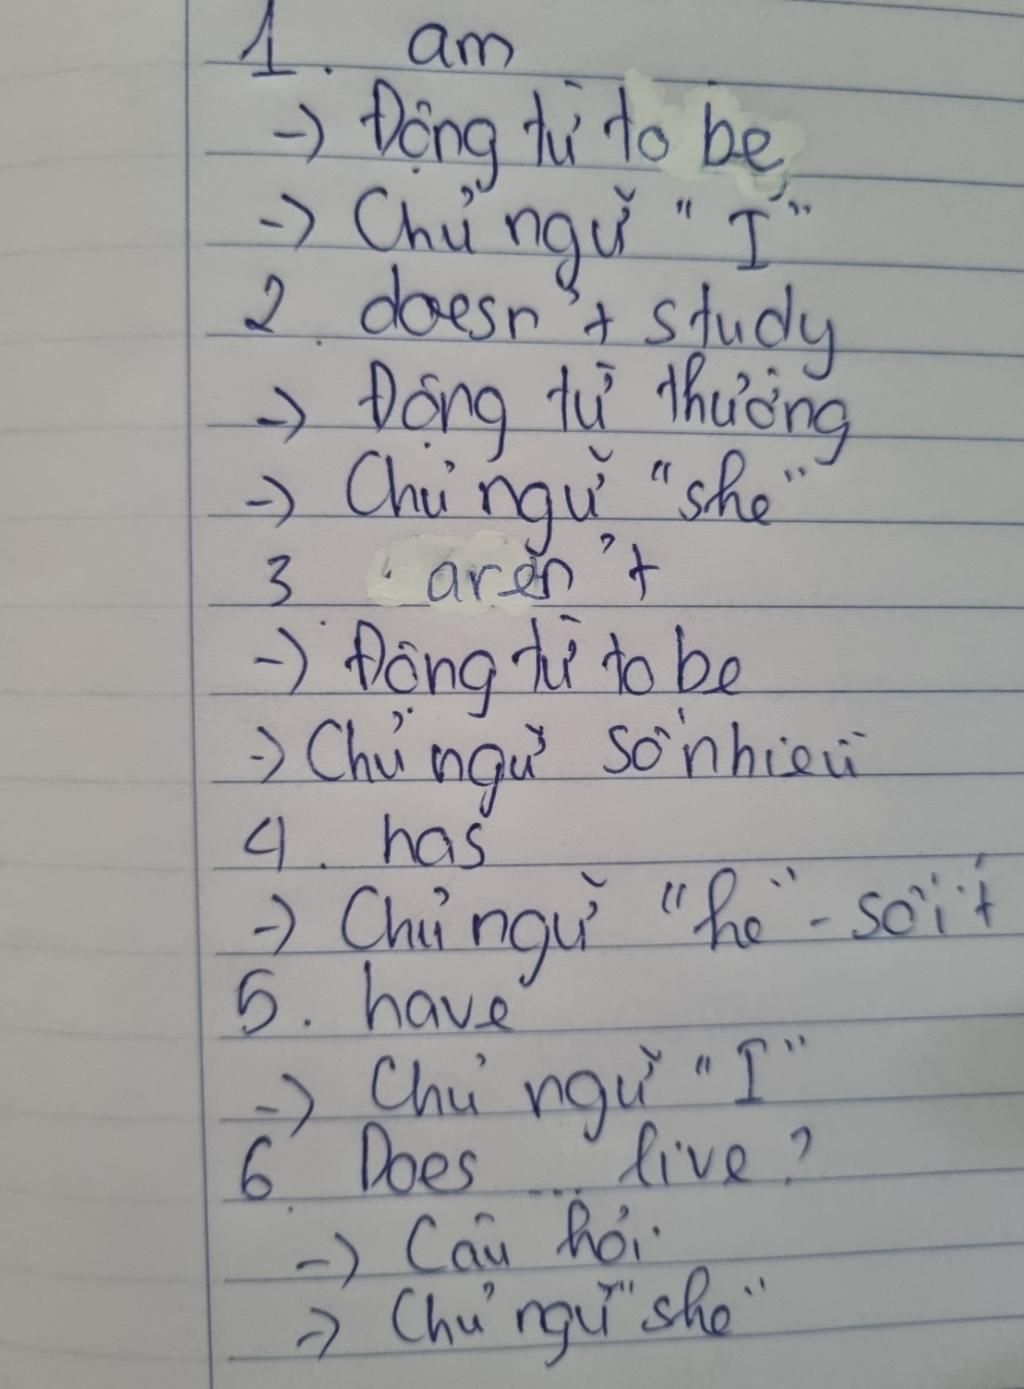 1. am
-> Động từ to be
-> Chủ ngữ "I"
2. doesn't study
-> Động từ thường
-> Chủ ngữ "she"
3. aren't
-> Động từ to be
-> Chủ ngữ số nhiều
4. has
-> Chủ ngữ "he" - số ít
5. have
-> Chủ ngữ "I"
6. Does ... live?
-> Câu hỏi
-> Chủ ngữ "she"